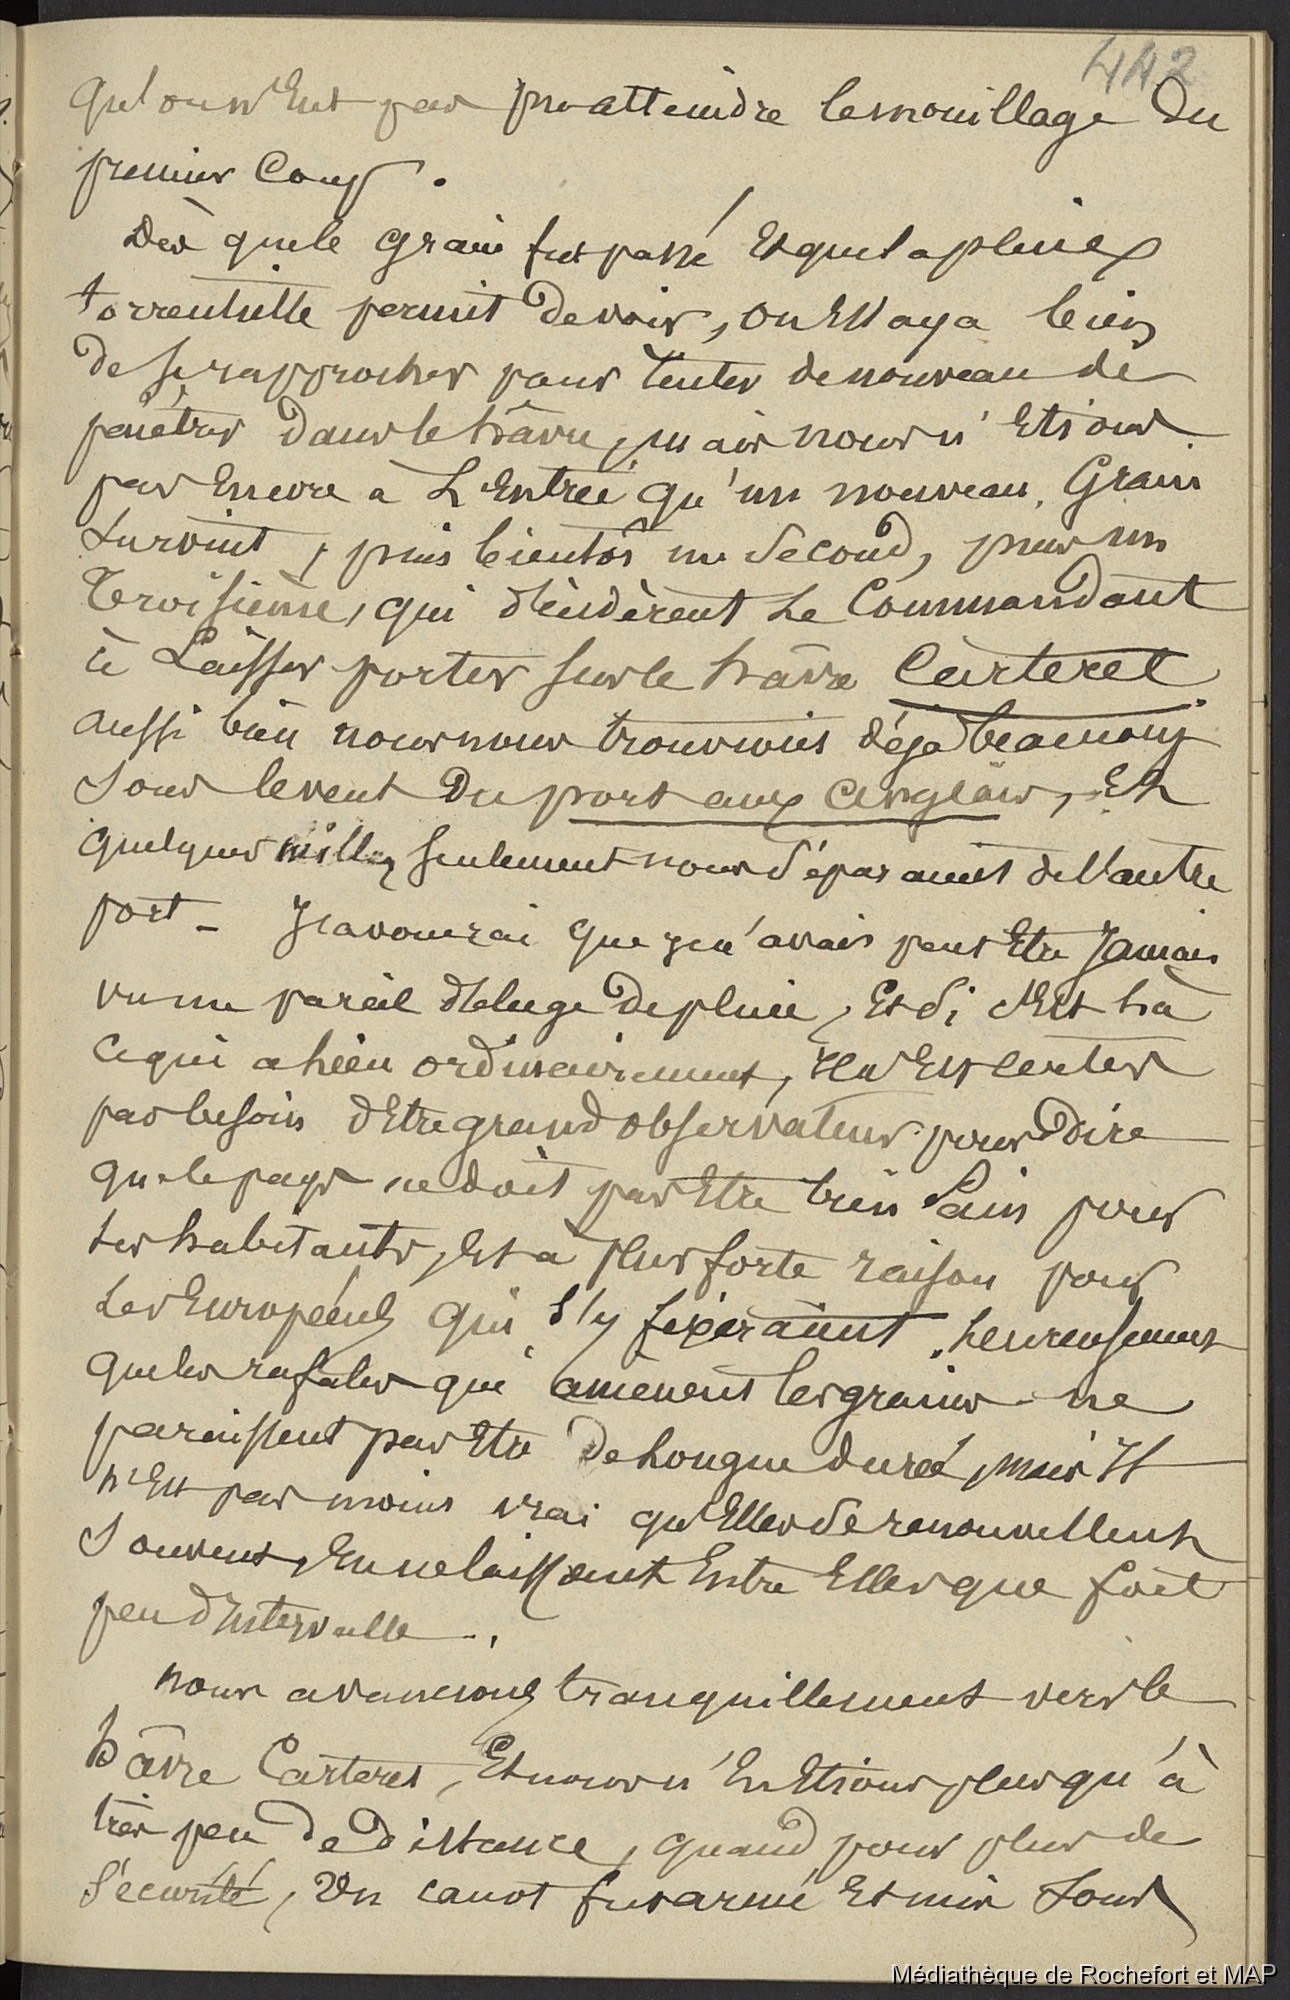 442
qu'on n'eut pas pu atteindre le mouillage du
premier coup.
Dès que le grain fut passé et que la pluie
torrentielle permit de voir, on essaya bien
de se rapprocher pour tenter de nouveau de
pénétrer dans le hâvre, mais nous n'étions
pas encore à L'Entrée qu'un nouveau Grain
survint, puis bientôt un second, puis un
Troisième, qui décidèrent Le Commandant
à Laisser porter sur le hâvre Carteret
aussi bien nous nous trouvions déjà beaucoup
sous le vent du port aux anglais, Et
quelques milles seulement nous séparaient de l'autre
port - J'avouerai que je n'avais peut Etre Jamais
vu un pareil déluge de pluie, Et si c'Est Là
ce qui a lieu ordinairement, il n'Est certes
pas besoin d'Etre grand observateur pour dire
que le pays ne doit pas Etre bien Sain pour
Les habitants, Et à plus forte raison pour
Les Européens qui s'y fixeraient, heureusement
que les rafales qui amènent les grains ne
paraissent pas Etre de Longue durée, mais Il
n'Est pas moins vrai qu'Elles se renouvellent
souvent, En ne laissant Entre Elles que fort
peu d'Intervalle.
nous avancions tranquillement vers le
hâvre Carteret, Et nous n'En Etions plus qu'à
très peu de distance, quand pour plus de
sécurité, Un canot fut armé Et mis sous
Médiathèque de Rochefort et MAP